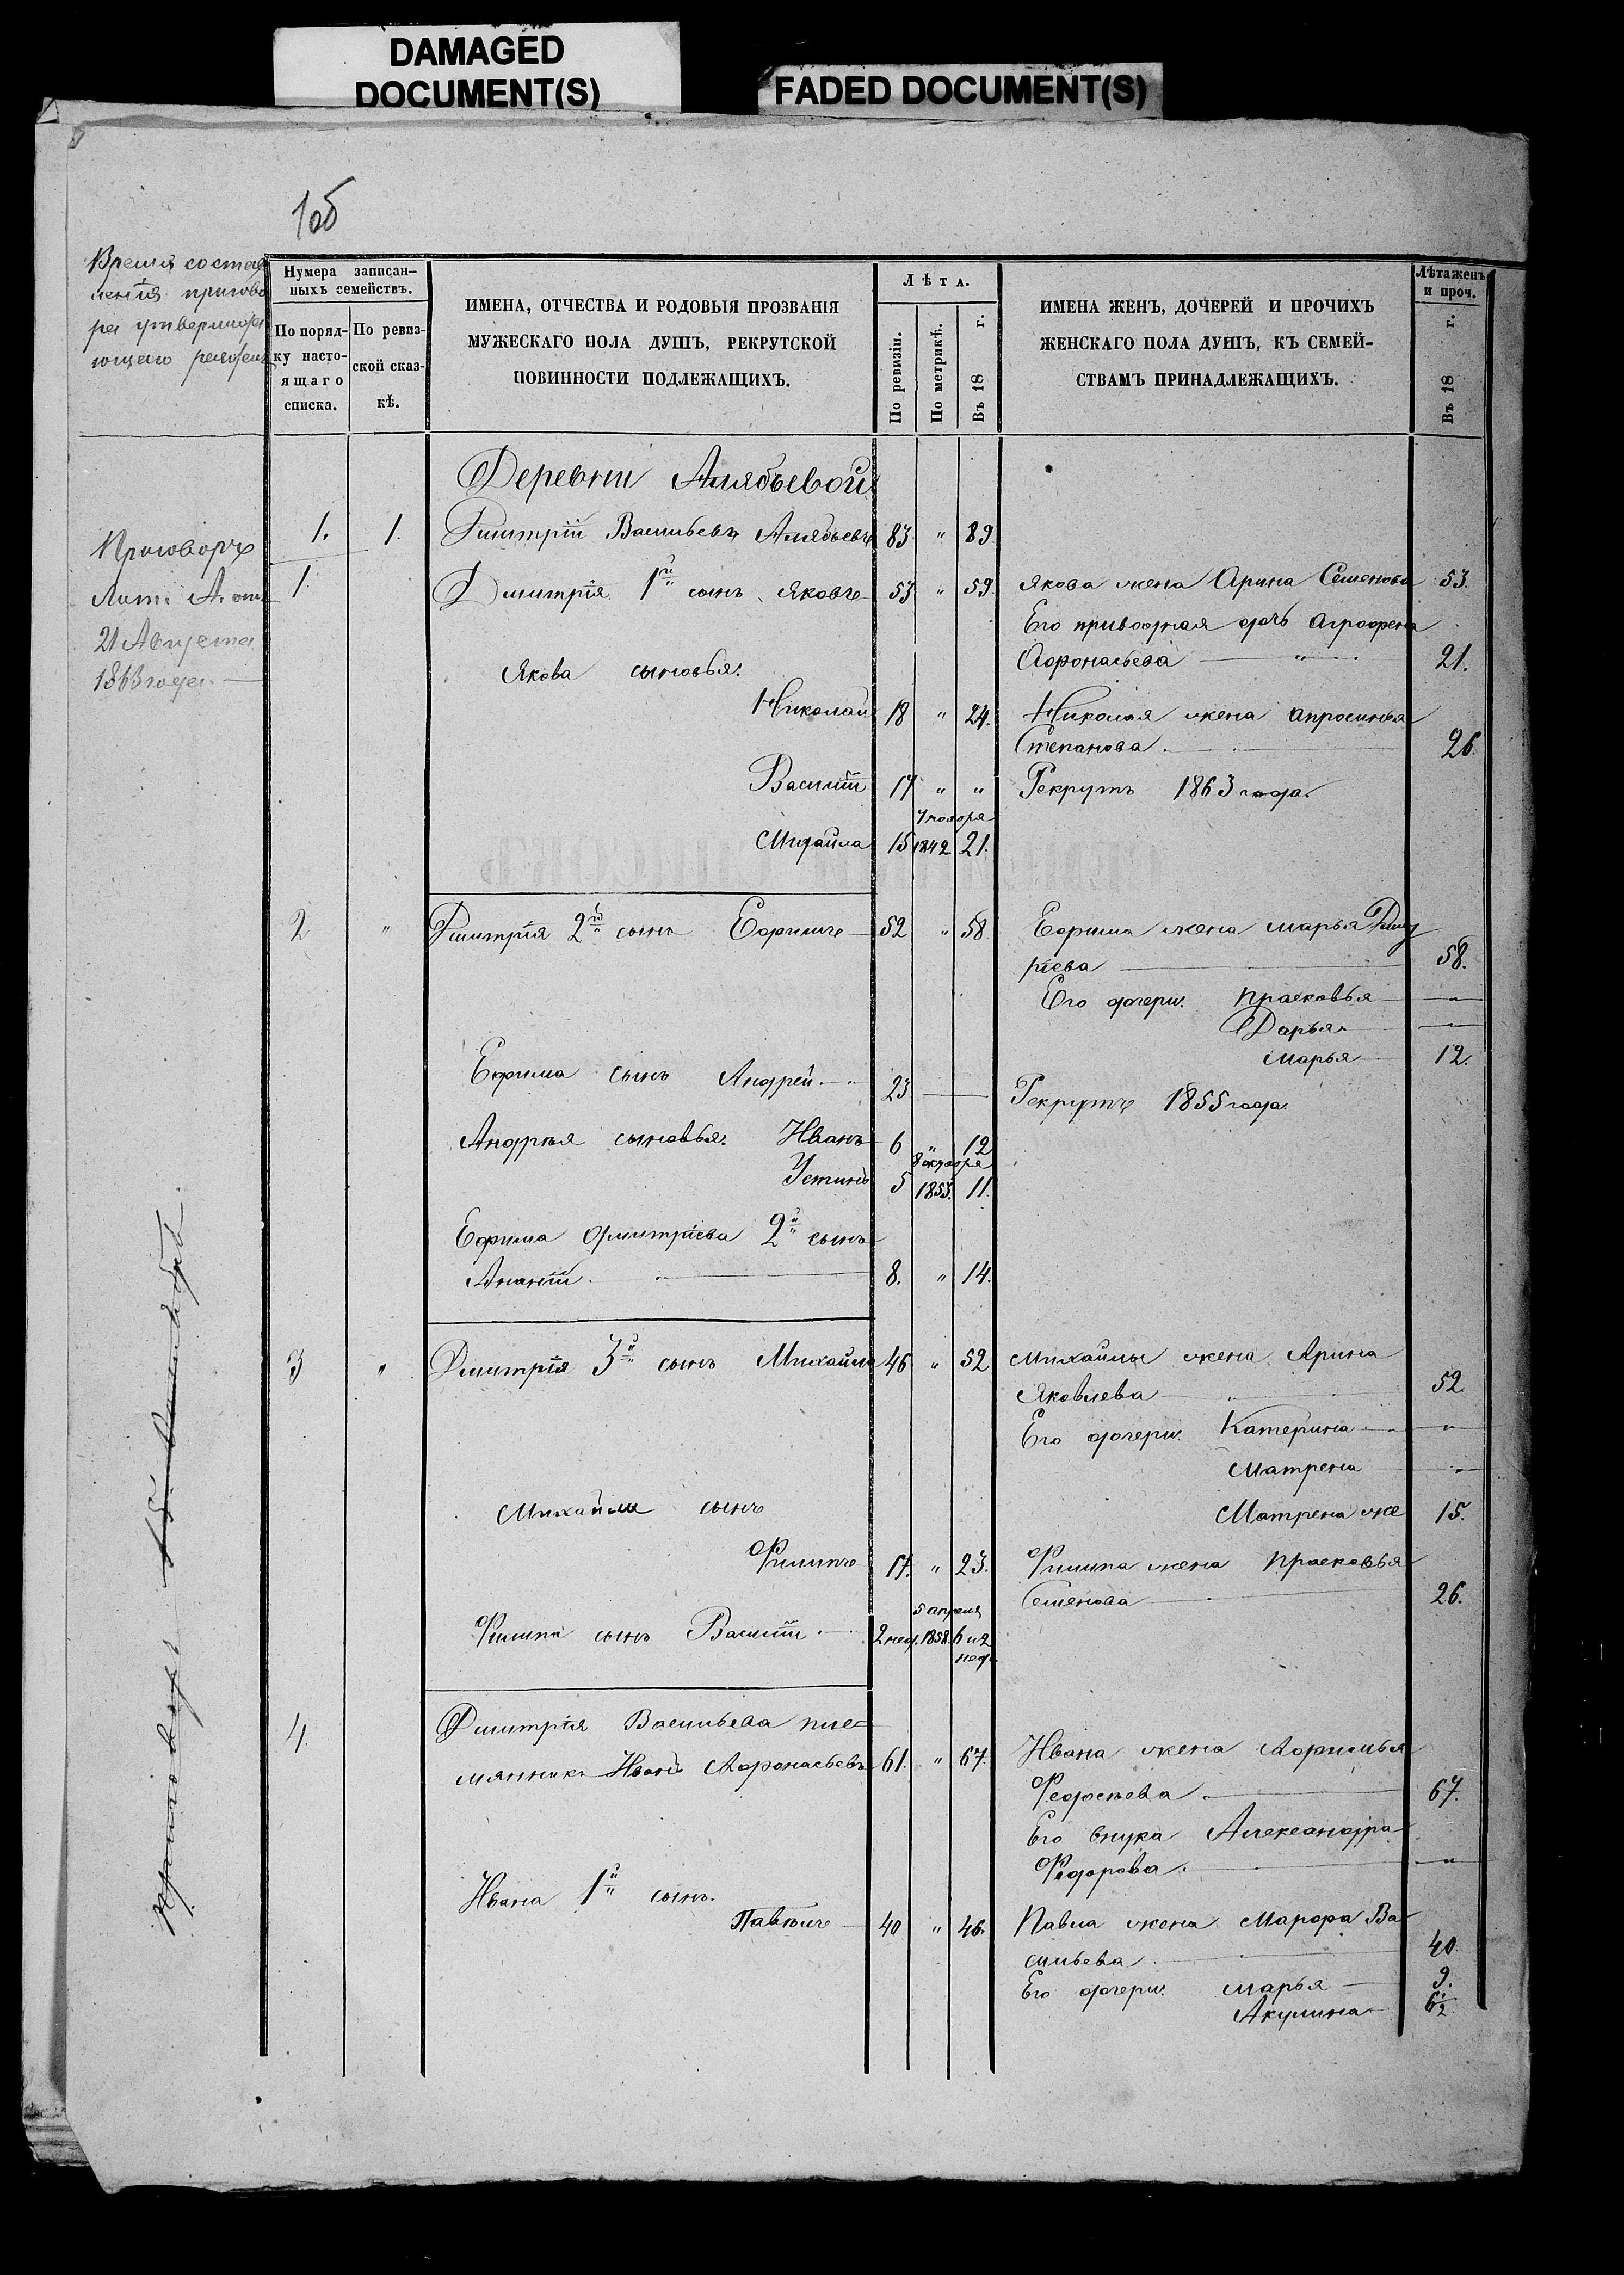 DAMAGED
DOCUMENT(S)
FADED DOCUMENT(S)
Время состав
ленія пригово
ра утвержда
ющаго раздѣлъ
Нумера записан-
ныхъ семействъ.
По поряд-
ку насто-
ящаго
списка.
По ревиз-
ской сказ-
кѣ.
ИМЕНА, ОТЧЕСТВА И РОДОВЫЯ ПРОЗВАНІЯ
МУЖЕСКАГО ПОЛА ДУШЪ, РЕКРУТСКОЙ
ПОВИННОСТИ ПОДЛЕЖАЩИХЪ.
Лѣта.
По ревизіи.
По метрикѣ.
Въ 18 г.
ИМЕНА ЖЕНЪ, ДОЧЕРЕЙ И ПРОЧИХЪ
ЖЕНСКАГО ПОЛА ДУШЪ, КЪ СЕМЕЙ-
СТВАМЪ ПРИНАДЛЕЖАЩИХЪ.
Лѣта женъ
и проч.
Въ 18 г.
Деревни Алябьевой
Приговоръ
Лит. А. отъ
21 Августа
1863 года
1. 1. Дмитрій Васильевъ Алябьевъ 83 " 89.
1. Дмитрія 1й сынъ Яковъ 53 " 59. Якова жена Арина Семенова 53.
Его приводная дочь Агрофена
Афонасьева " 21.
Якова сыновья:
Николай 18 " 24. Николая жена Апросинья
Степанова. 26.
Василій 17 " " Рекрутъ 1863 года.
Михайла 15 1842 21.
2 " Дмитрія 2й сынъ Ефимъ 52 " 58 Ефима жена Марья Дмит
ріева 58.
Его дочери. Прасковья "
Дарья "
Марья 12.
Ефима сынъ Андрей. 23 Рекрутъ 1855 года.
Андрея сыновья. Иванъ 6 " 12
8 октября
Устинъ 5 1853. 11.
Ефима Дмитріева 2й сынъ
Ананій. 8. " 14.
3 " Дмитрія 3й сынъ Михайла 46 " 52 Михайлы жена Арина
Яковлева " 52.
Его дочери. Катерина "
Матрена "
Михайлы сынъ Матрена же 15.
Филипъ 17. " 23. Филипа жена Прасковья
Семенова 26.
5 апреля
Филипа сынъ Василій. 2 нед. 1858. 6 и 2
нед.
4. Дмитрія Васильева пле=
мянникъ Иванъ Афонасьевъ 61. " 67. Ивана жена Афимья
Федосеева. 67.
Его внука Александра
Федорова. "
Ивана 1й сынъ.
Павелъ 40 " 46. Павла жена Марфа Ва
сильева. 40.
Его дочери. Марья 9.
Акулина 6½
приговоръ